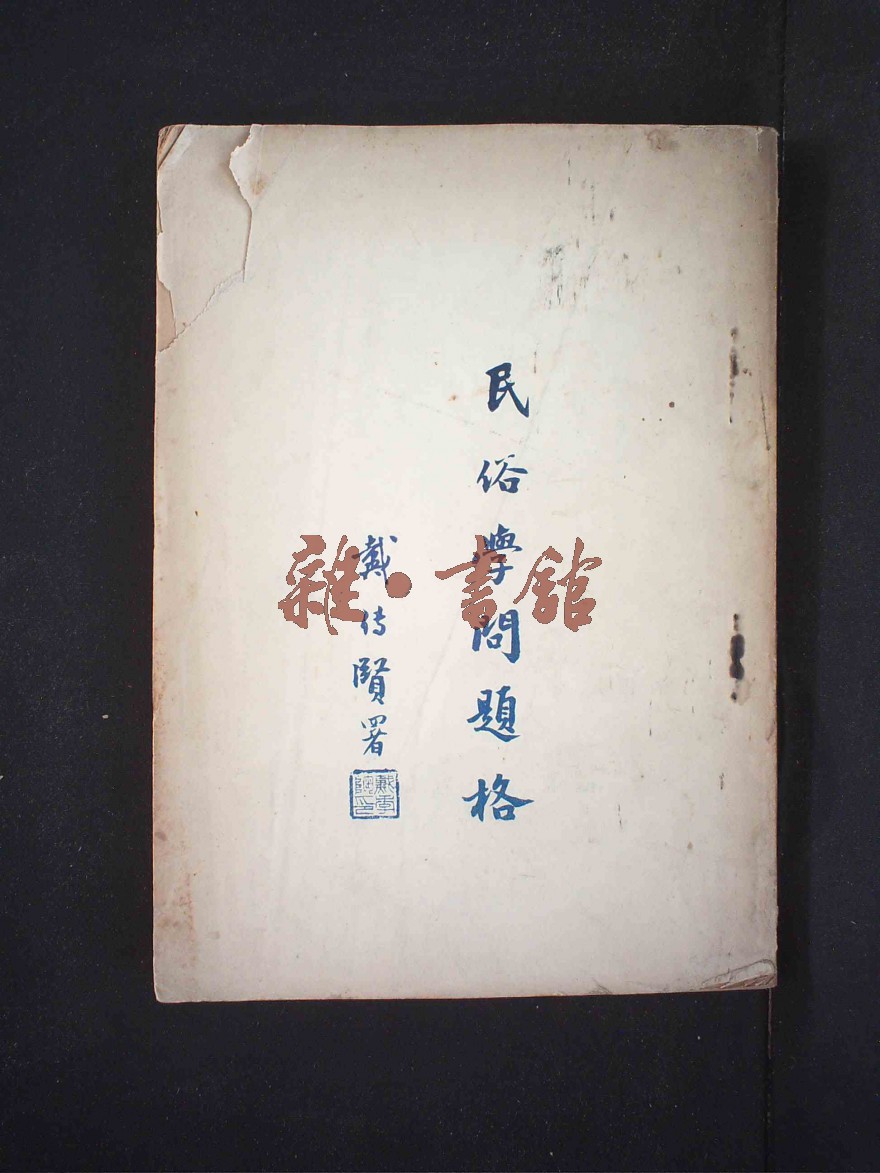 民俗學問題格
戴傳賢署
戴季陶印
雜·書館